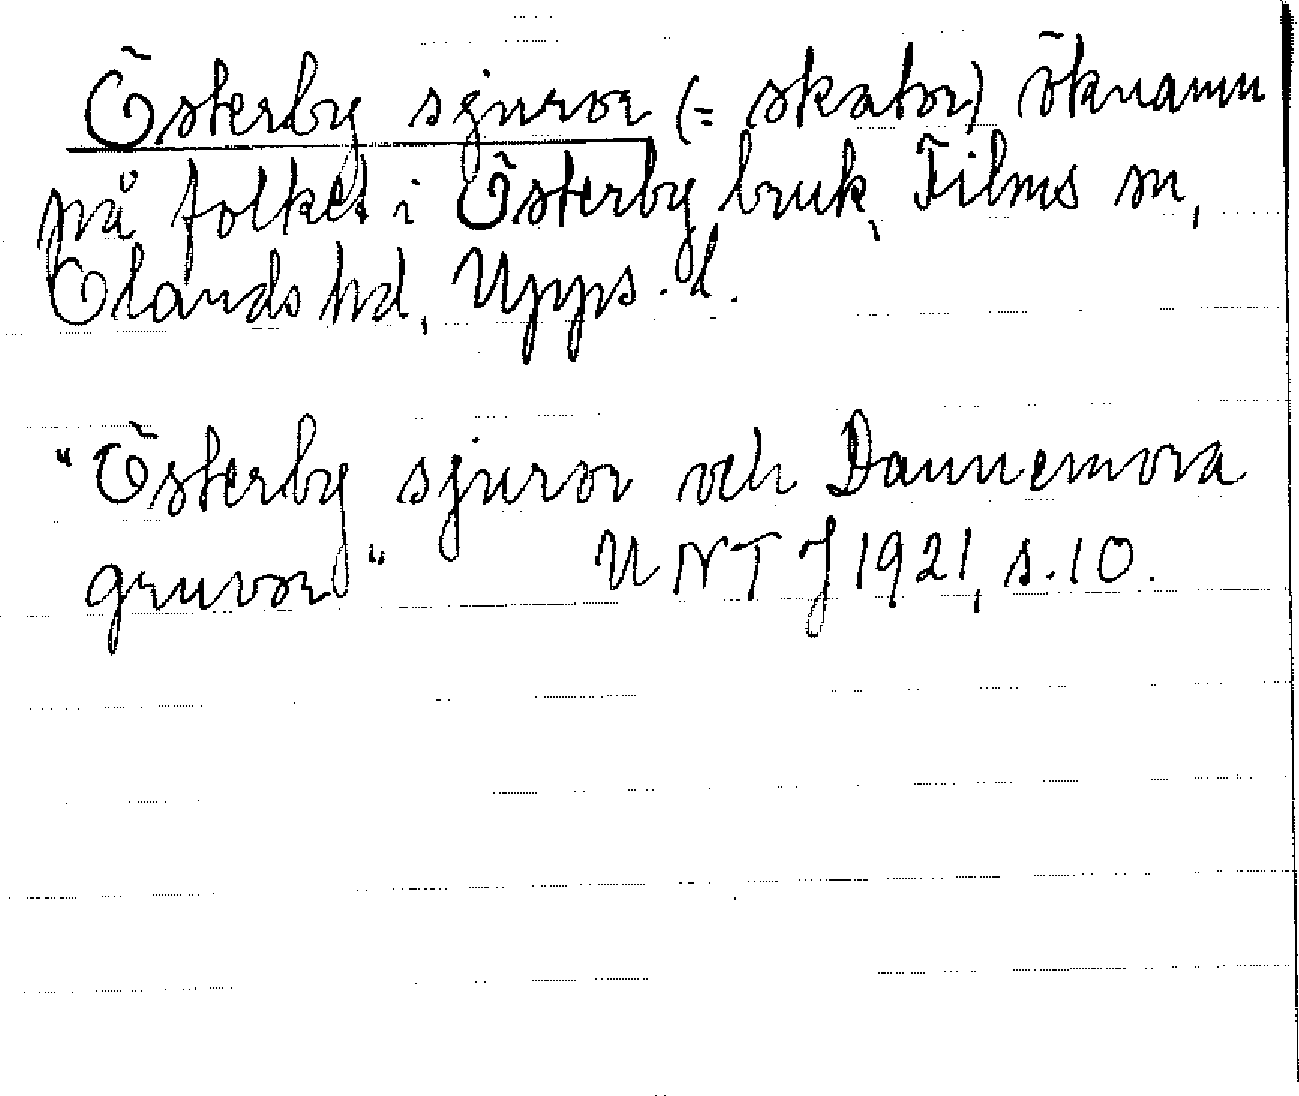 Österby sjuror (= skator) öknamn
på folket i Österby bruk, Films sn,
Olands hd, Upps. l.
"Österby sjuror och Dannemora
gruvor" UNT J 1921, s. 10.